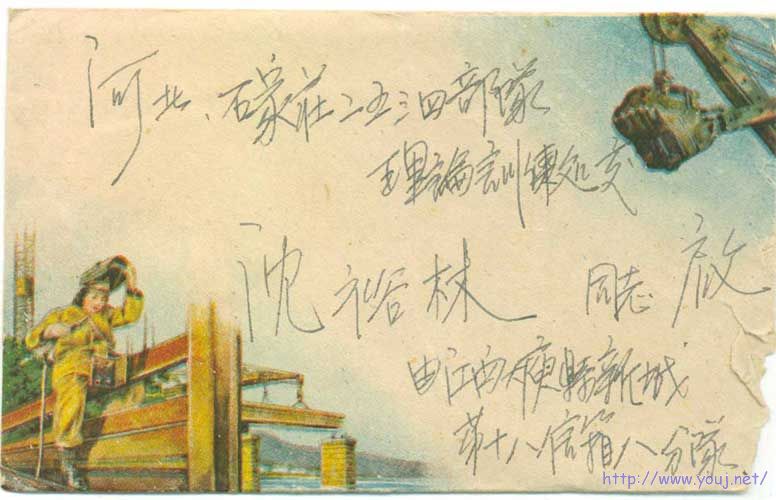 河北、石家莊二五三四部隊
理論訓練処交
沈裕林 同志 啟
由江西大庾縣新城
第十八信箱八分隊
http://www.youj.net/